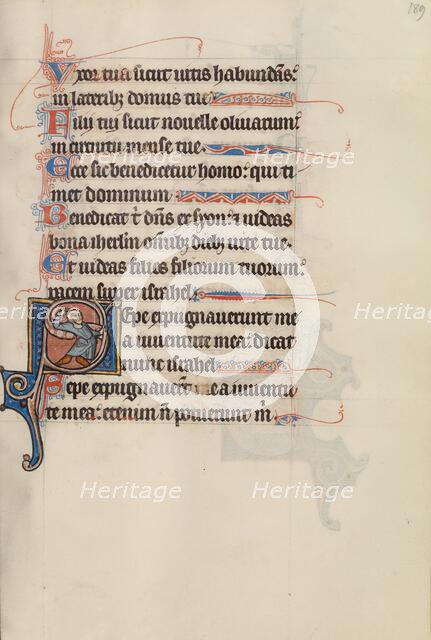 189
Vxor tua sicut uitis habundans:
in lateribȝ domus tue
Filii tui sicut nouelle oliuarum:
in circuitu mense tue.
Ecce sic benedicetur homo: qui ti
met dominum
Benedicat t̄ dn̄s ex syon: ⁊ uideas
bona iherl̄m om̄ibȝ diebȝ uite tue.
Et uideas filios filiorum tuorum:
pacem super israhel.
Heritage Heritage Heritage
Sepe expugnauerunt me
a iuuentute mea: dicat
nunc israhel
Sepe expugnauer̄t me a iuuentu
te mea: etenim n̄ potuerunt m̄
Heritage Heritage